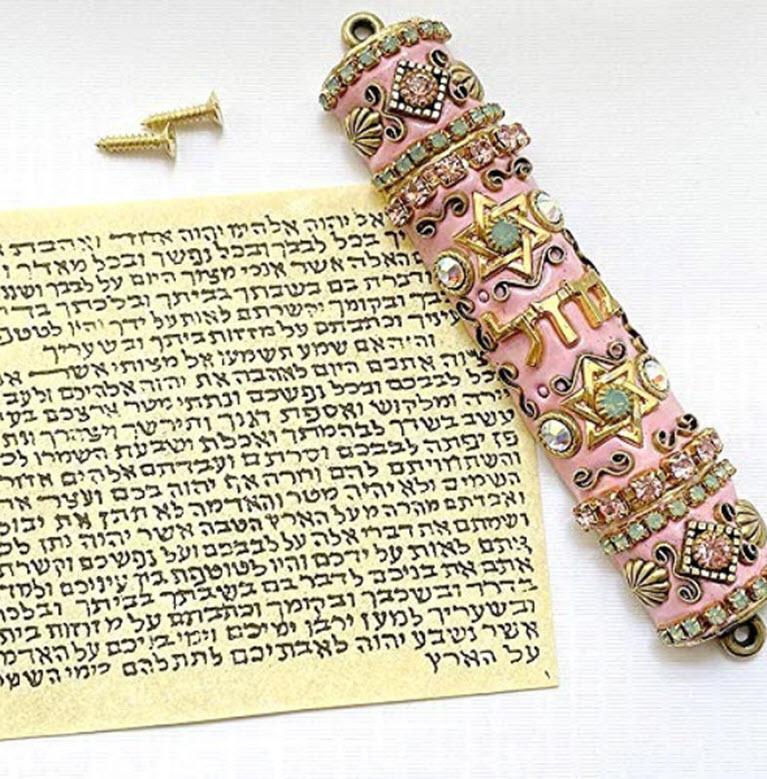 אל יהוה אלהינו יהוה אחד ואהבת
יך בכל לבבך ובכל נפשך ובכל מאדך ו
האלה אשר אנכי מצוך היום על לבבך ושננ
ודברת בם בשבתך בביתך ובלכתך בדר
בך ובקומך וקשרתם לאות על ידך והיו לטטפ
עיניך וכתבתם על מזזות ביתך ובשעריך
והיה אם שמע תשמעו אל מצותי אשר א
וה אתכם היום לאהבה את יהוה אלהיכם ולעב
כל לבבכם ובכל נפשכם ונתתי מטר ארצכם בע
ורה ומלקוש ואספת דגנך ותירשך ויצהרך ונת
עשב בשדך לבהמתך ואכלת ושבעת השמרו לכ
פן יפתה לבבכם וסרתם ועבדתם אלהים אחרי
והשתחויתם להם וחרה אף יהוה בכם ועצר א
השמים ולא יהיה מטר והאדמה לא תתן את יבול
ואבדתם מהרה מעל הארץ הטבה אשר יהוה נתן לכ
ושמתם את דברי אלה על לבבכם ועל נפשכם וקשרת
אתם לאות על ידכם והיו לטוטפת בין עיניכם ולמד
אתם את בניכם לדבר בם בשבתך בביתך ובלכ
בדרך ובשכבך ובקומך וכתבתם על מזוזות בית
ובשעריך למען ירבו ימיכם וימי בניכם על האדמ
אשר נשבע יהוה לאבתיכם לתת להם כימי השמ
על הארץ
מזל